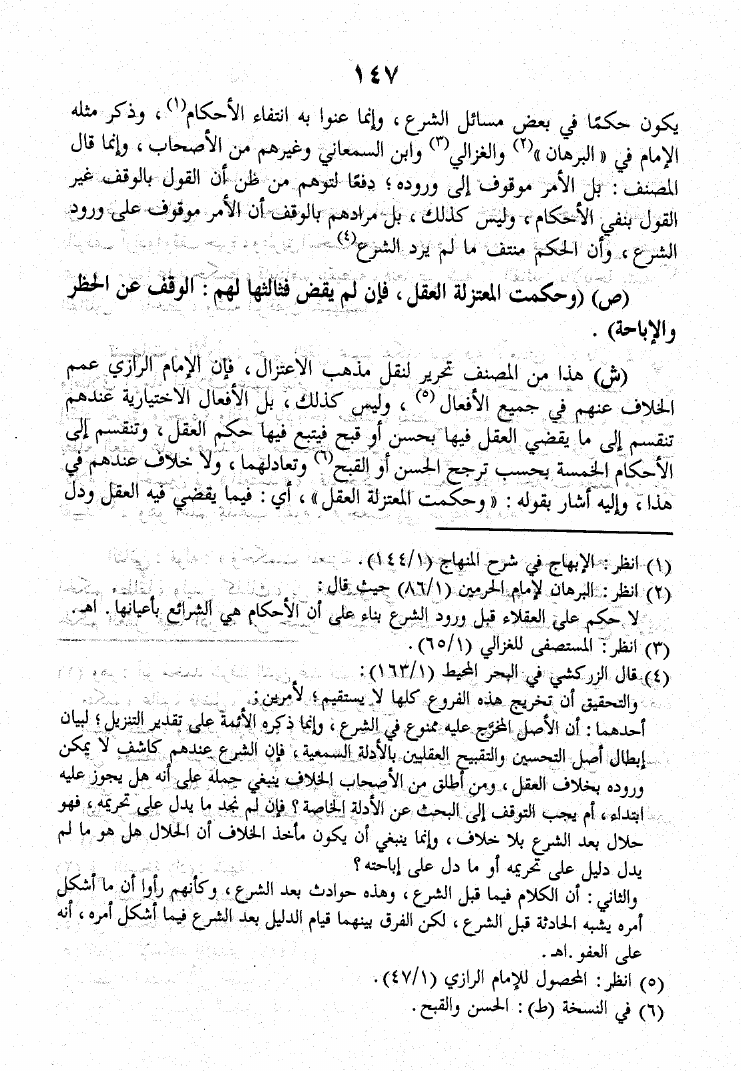 ١٤٧
يكون حكمًا في بعض مسائل الشرع ، وإنما عنوا به انتفاء الأحكام(١) ، وذكر مثله
الإمام في « البرهان »(٢) والغزالي(٣) وابن السمعاني وغيرهم من الأصحاب ، وإنما قال
المصنف : بل الأمر موقوف إلى وروده ؛ دفعًا لتوهم من ظن أن القول بالوقف غير
القول بنفي الأحكام ، وليس كذلك ، بل مرادهم بالوقف أن الأمر موقوف على ورود
الشرع ، وأن الحكم منتف ما لم يرد الشرع(٤)
(ص) (وحكمت المعتزلة العقل ، فإن لم يقض فثالثها لهم : الوقف عن الحظر
والإباحة) .
(ش) هذا من المصنف تحرير لنقل مذهب الاعتزال ، فإن الإمام الرازي عمم
الخلاف عنهم في جميع الأفعال(٥) ، وليس كذلك ، بل الأفعال الاختيارية عندهم
تنقسم إلى ما يقضي العقل فيها بحسن أو قبح فيتبع فيها حكم العقل ، وتنقسم إلى
الأحكام الخمسة بحسب ترجح الحسن أو القبح(٦) وتعادلهما ، ولا خلاف عندهم في
هذا ، وإليه أشار بقوله : « وحكمت المعتزلة العقل » ، أي : فيما يقضي فيه العقل ودل
(١) انظر : الإبهاج في شرح المنهاج (١/١٤٤) .
(٢) انظر : البرهان لإمام الحرمين (١/٨٦) حيث قال :
لا حكم على العقلاء قبل ورود الشرع بناء على أن الأحكام هي الشرائع بأعيانها . اهـ.
(٣) انظر : المستصفى للغزالي (١/٦٥) .
(٤) قال الزركشي في البحر المحيط (١/١٦٣) :
والتحقيق أن تخريج هذه الفروع كلها لا يستقيم ؛ لأمرين :
أحدهما : أن الأصل المخرَّج عليه ممنوع في الشرع ، وإنما ذكره الأئمة على تقدير التنزيل ؛ لبيان
إبطال أصل التحسين والتقبيح العقليين بالأدلة السمعية ، فإن الشرع عندهم كاشف لا يمكن
وروده بخلاف العقل ، ومن أطلق من الأصحاب الخلاف ينبغي حمله على أنه هل يجوز عليه
ابتداء ، أم يجب التوقف إلى البحث عن الأدلة الخاصة ؟ فإن لم نجد ما يدل على تحريمه ، فهو
حلال بعد الشرع بلا خلاف ، وإنما ينبغي أن يكون مأخذ الخلاف أن الحلال هل هو ما لم
يدل دليل على تحريمه أو ما دل على إباحته ؟
والثاني : أن الكلام فيما قبل الشرع ، وهذه حوادث بعد الشرع ، وكأنهم رأوا أن ما أشكل
أمره يشبه الحادثة قبل الشرع ، لكن الفرق بينهما قيام الدليل بعد الشرع فيما أشكل أمره ، أنه
على العفو .اهـ .
(٥) انظر : المحصول للإمام الرازي (١/٤٧) .
(٦) في النسخة (ط) : الحسن والقبح .